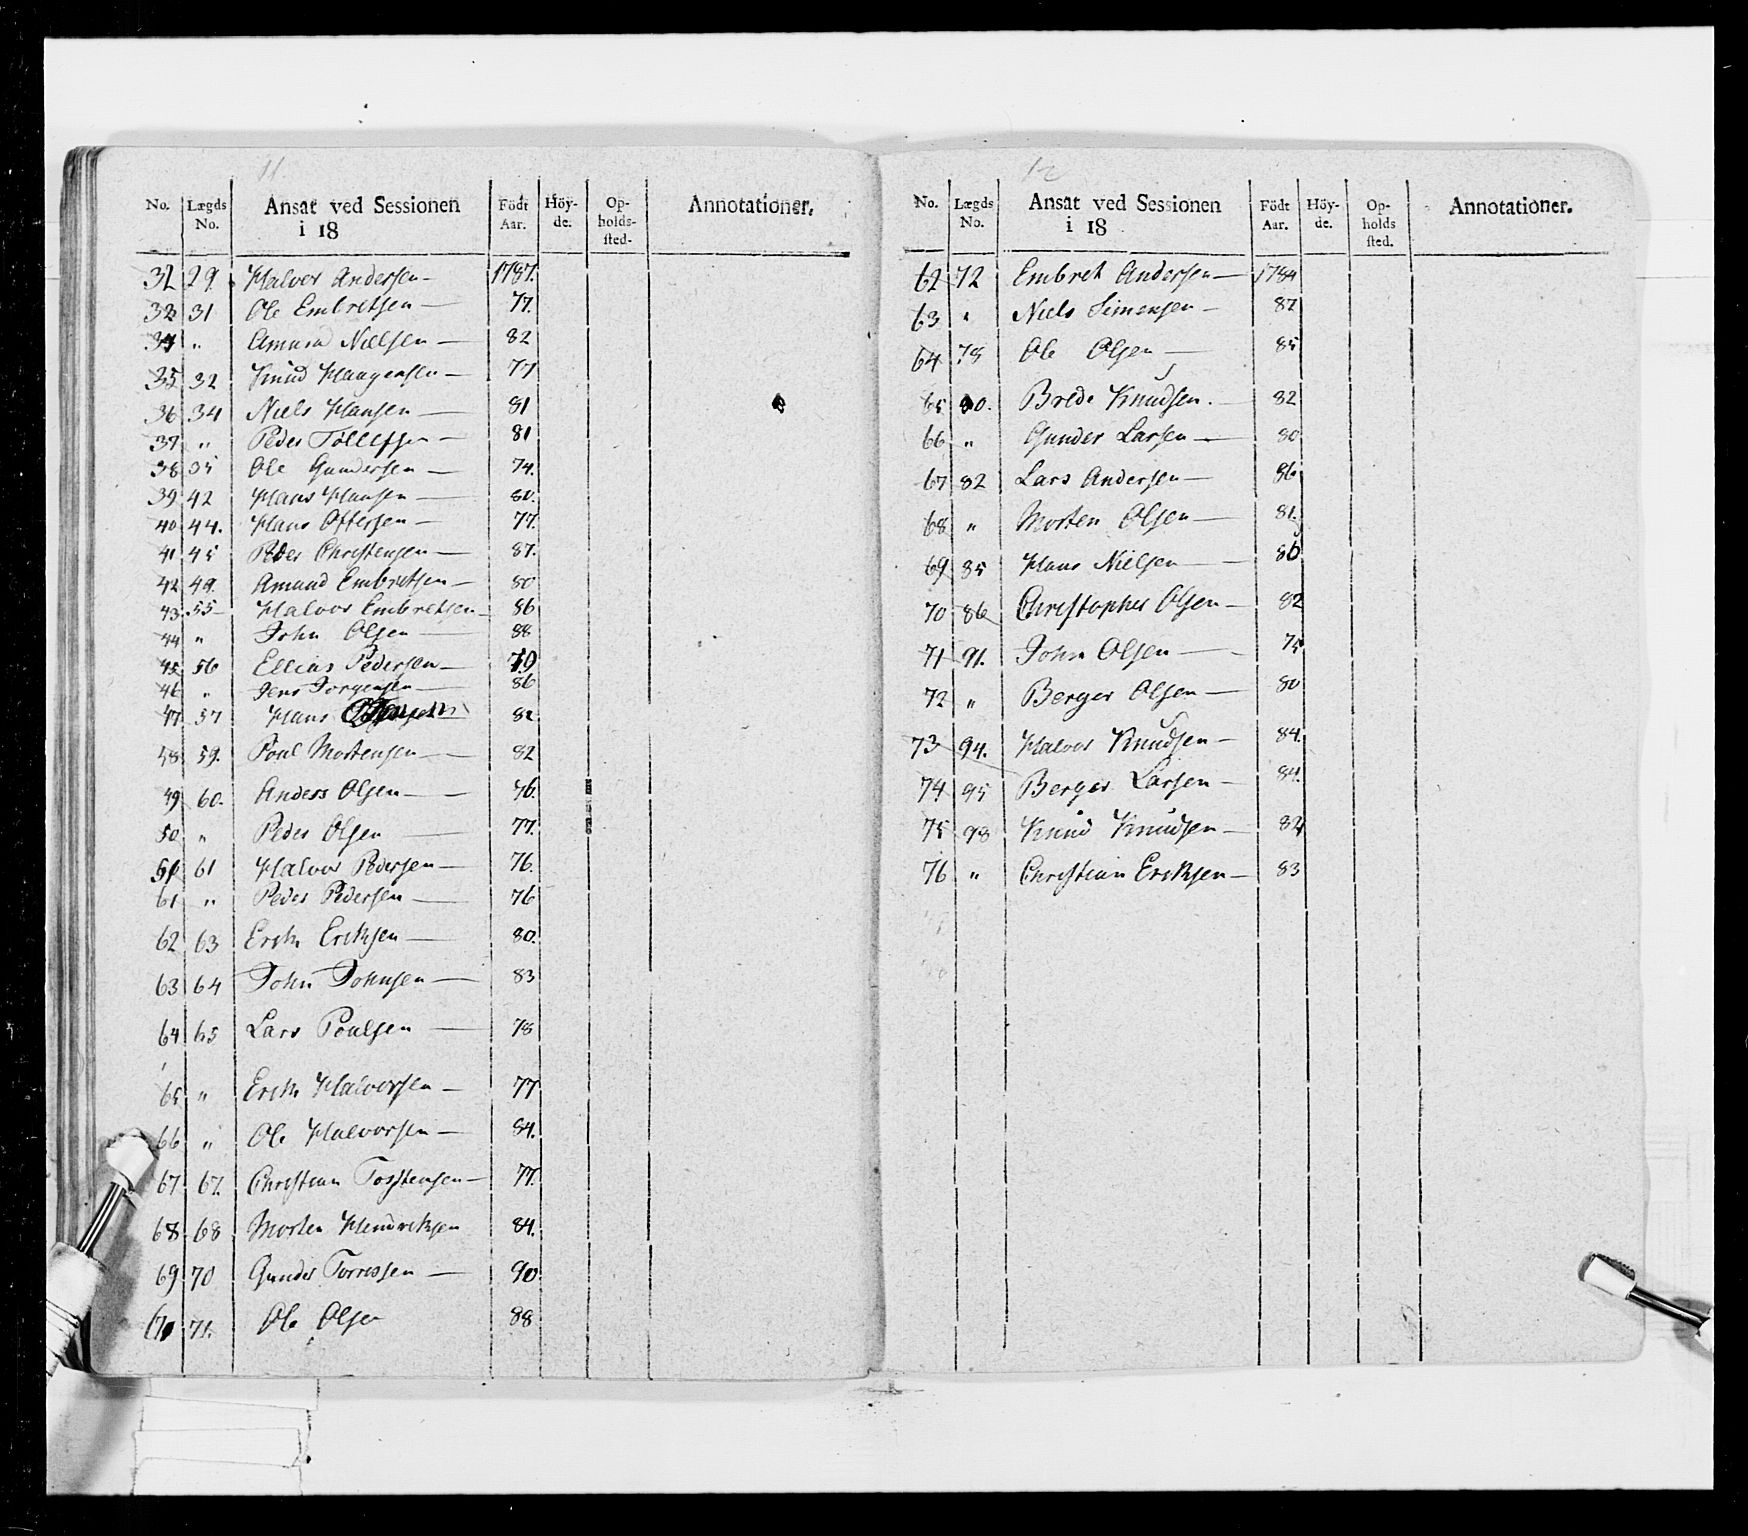 11.
No. Lægds No. Ansat ved Sessionen i 18 Födt Aar. Höyde. Opholdssted. Annotationer.
32 29. Halvor Andersen — 1787.
33 31 Ole Embretsen — 77.
34 " Amund Nielsen — 82
35 32 Knud Haagensen — 77
36 34 Niels Hansen — 81
37 " Peder Tollefsen — 81
38 35 Ole Gundersen — 74.
39 42 Hans Hansen — 80.
40 44. Hans Ottersen — 77.
41 45 Peder Christensen — 87.
42 49. Amund Embretsen — 80
43 55 Halvor Embretsen — 86
44 " John Olsen — 88
45 56 Ellias Pedersen — 79
46 " Jens Jorgensen — 86
47 57 Hans 82
48 59. Poul Mortensen — 82
49 60. Anders Olsen — 76.
50 " Peder Olsen — 77.
51 61 Halvor Pedersen — 76.
61 " Peder Pedersen — 76
62 63 Erik Eriksen — 80.
63 64 John Johnsen — 83
64 65 Lars Poulsen — 78
65 " Erik Halvorsen — 77
66 " Ole Halvorsen — 84.
67 67. Christian Torstensen — 77.
68 68 Morten Hendriksen 84.
69 70 Gunder Torressen — 90
70 71. Ole Olsen 88
12
No. Lægds No. Ansat ved Sessionen i 18 Födt Aar. Höyde. Opholds sted. Annotationer.
62 72 Embret Andersen — 1784
63 " Niels Simensen — 82
64 78 Ole Olsen — 85
65 80. Brede Knudsen. 82
66 " Gunder Larsen — 80
67 82 Lars Andersen — 86
68 " Morten Olsen — 81.
69 85 Hans Nielsen — 80
70 86 Christopher Olsen — 82
71 91. John Olsen — 75
72 " Berger Olsen — 80
73 94. Halvor Knudsen — 84.
74 95 Berger Larsen — 84.
75 98 Knud Knudsen — 82
76 " Christian Eriksen — 83